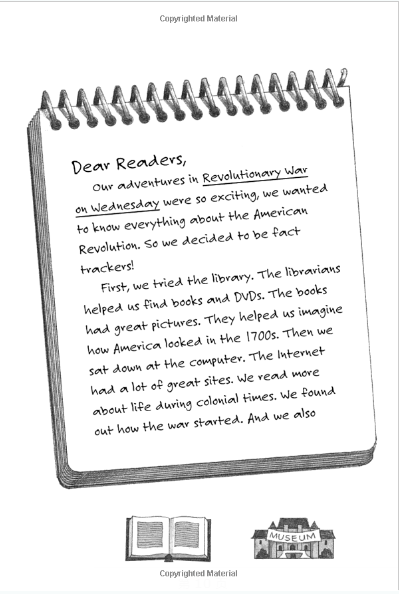 Copyrighted Material
Dear Readers,
Our adventures in Revolutionary War
on Wednesday were so exciting, we wanted
to know everything about the American
Revolution. So we decided to be fact
trackers!
First, we tried the library. The librarians
helped us find books and DVDs. The books
had great pictures. They helped us imagine
how America looked in the 1700s. Then we
sat down at the computer. The Internet
had a lot of great sites. We read more
about life during colonial times. We found
out how the war started. And we also
MUSEUM
Copyrighted Material